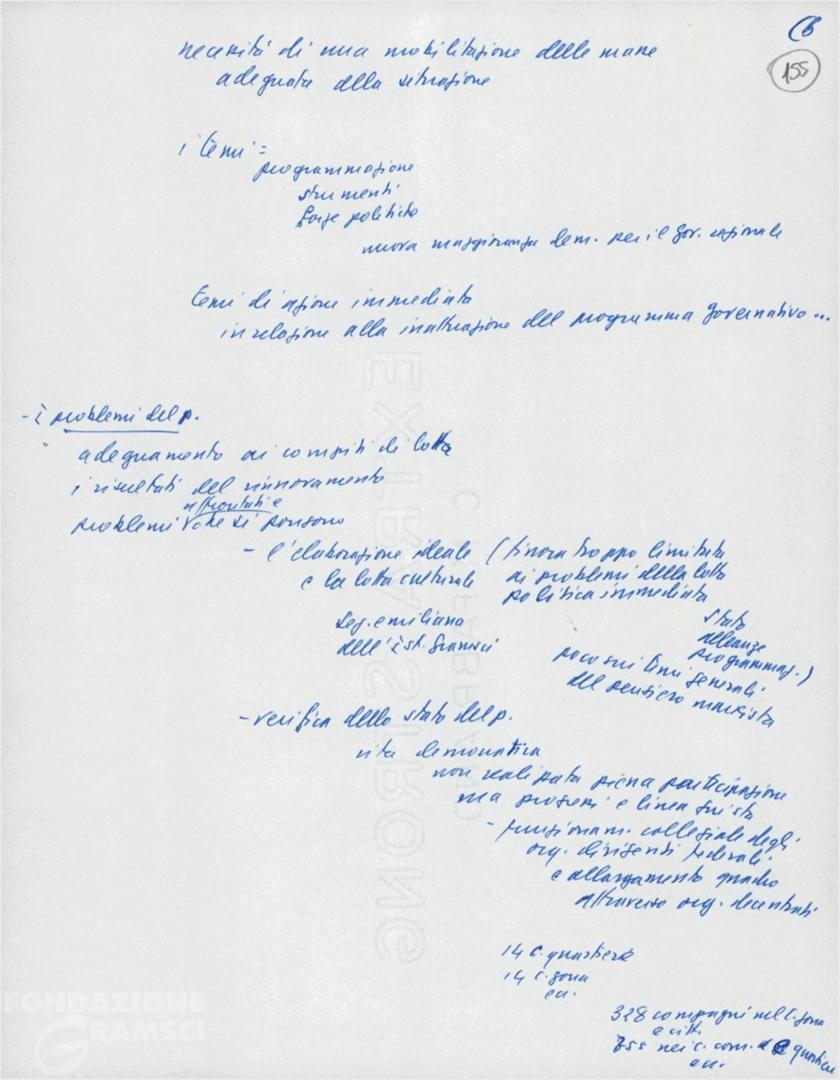 155
necessità di una mobilitazione delle masse
adeguata alla situazione
i temi =
programmazione
strumenti
forze politiche
nuova maggioranza dem. per il gov. regionale
temi di azione immediata
in relazione alla inattuazione del programma governativo...
- i problemi del p.
adeguamento ai compiti di lotta
i risultati del rinnovamento
affrontati e
problemi che si pongono
- l'elaborazione ideale (finora troppo limitata
e la lotta culturale ai problemi della lotta
politica immediata
Stato
alleanze
programmaz.)
Sez. emiliana
dell'Ist. Gramsci
poco sui temi generali
del pensiero marxista
- verifica dello stato del p.
vita democratica
non realizzata piena partecipazione
ma progressi e linea giusta
- funzionam. collegiale degli
org. dirigenti federali
e allargamento quadro
attraverso org. decentrati
14 C. quartiere
14 C. zona
ecc.
328 compagni nel C. zona
e citt.
755 nei C. com. e quartiere
ecc.
EXTRA STRONG
FONDAZIONE
GRAMSCI